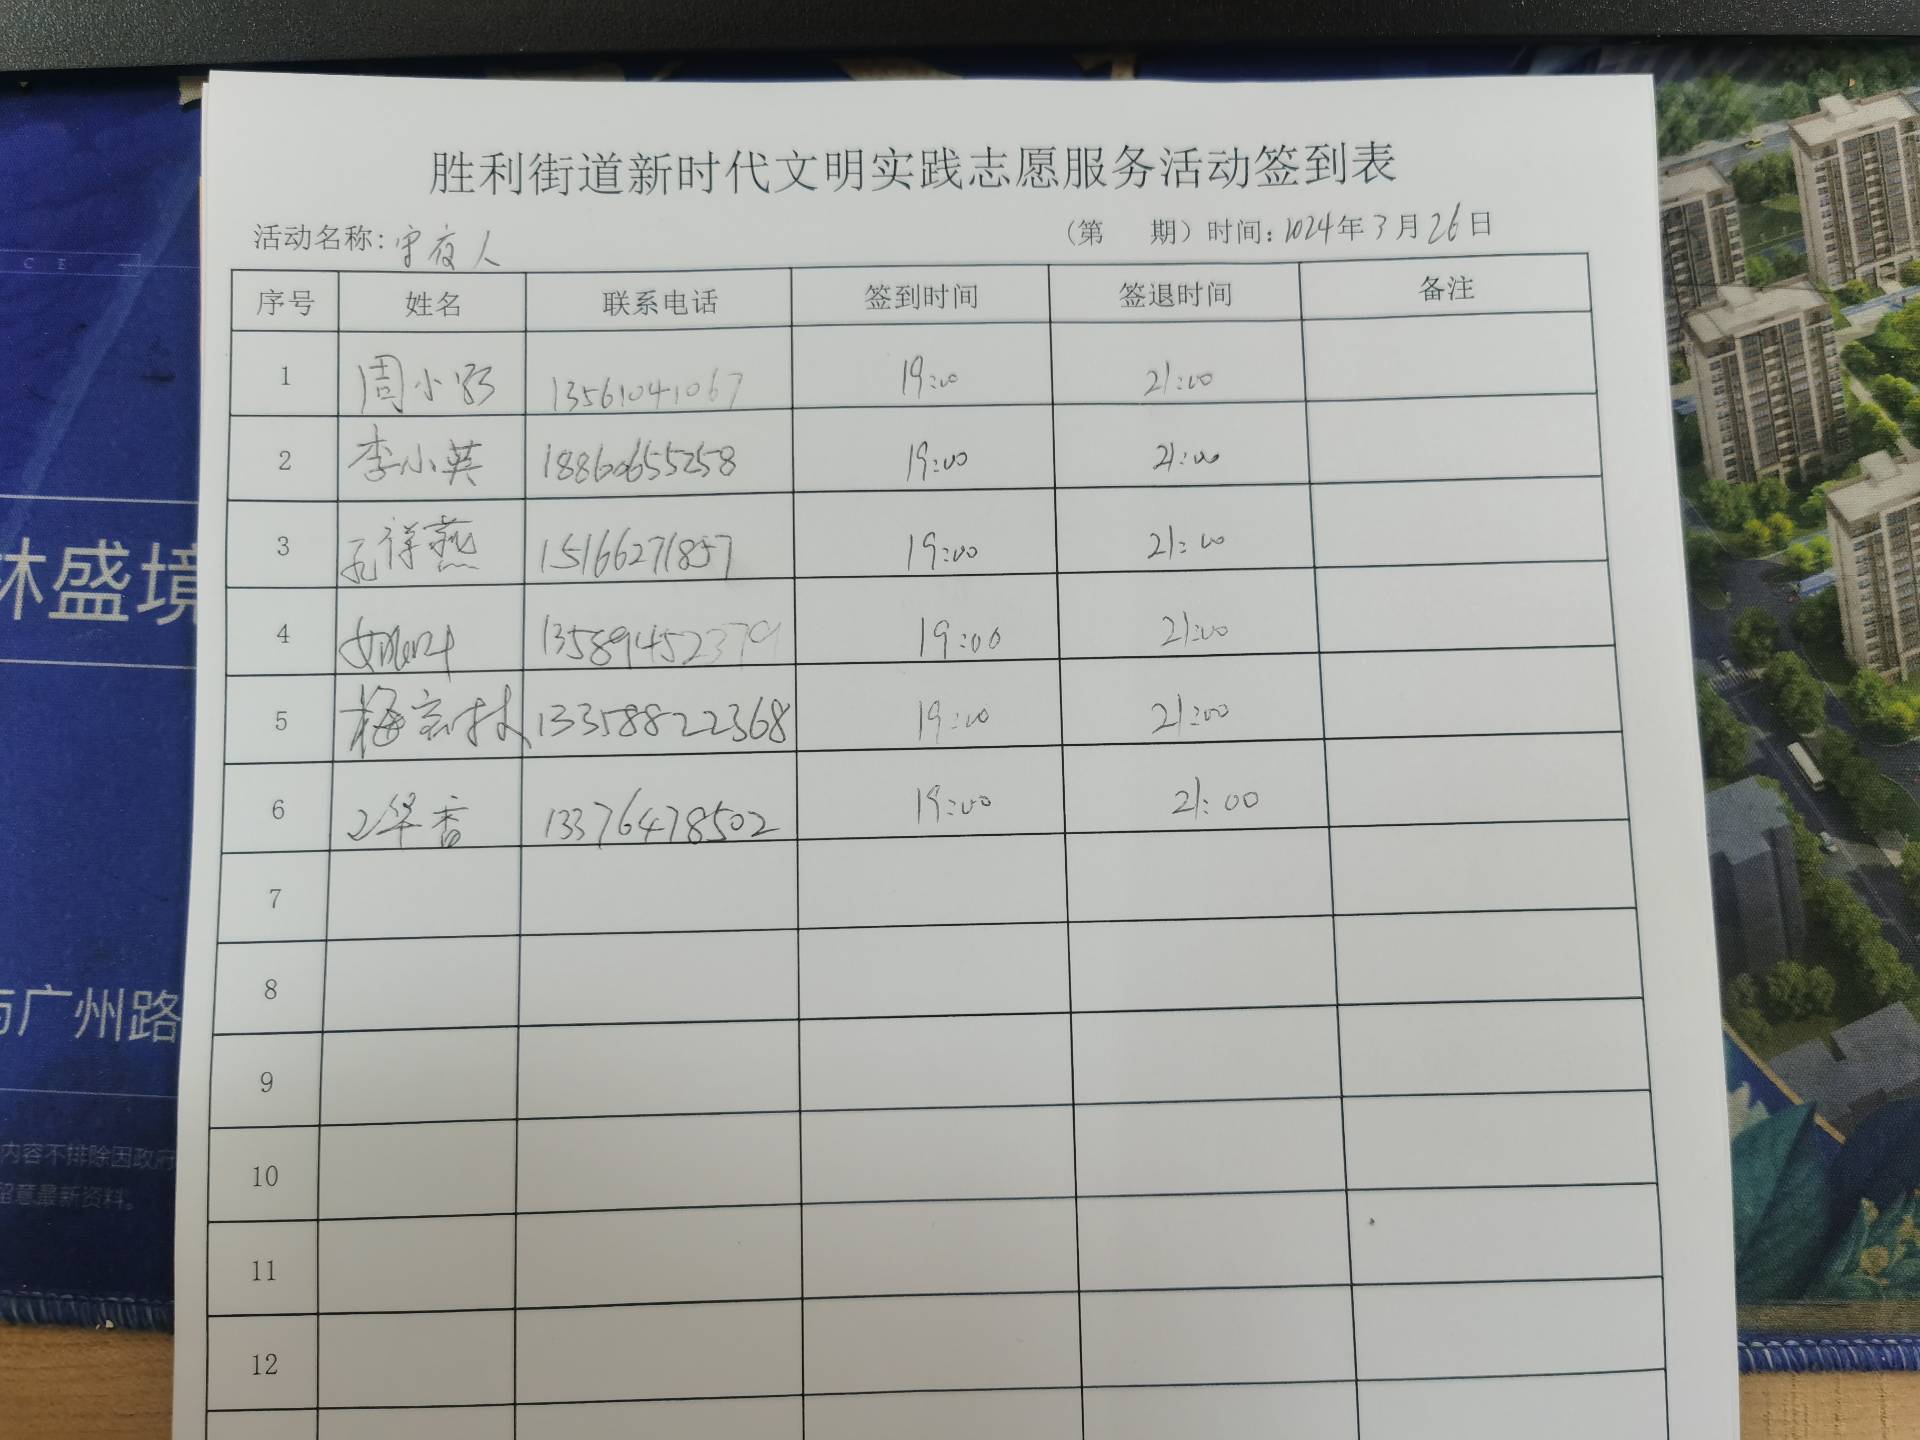 胜利街道新时代文明实践志愿服务活动签到表
活动名称: 守夜人 (第 期) 时间: 2024年3月26日
序号 姓名 联系电话 签到时间 签退时间 备注
1 周小 13561041067 19:00 21:00
2 李小英 18860655258 19:00 21:00
3 孔祥燕 15166271857 19:00 21:00
4 13589452379 19:00 21:00
5 梅 林 13358822368 19:00 21:00
6 华香 13376478502 19:00 21:00
7
8
9
10
11
12
C E
林盛境
与广州路
内容不排除因政府
留意最新资料。